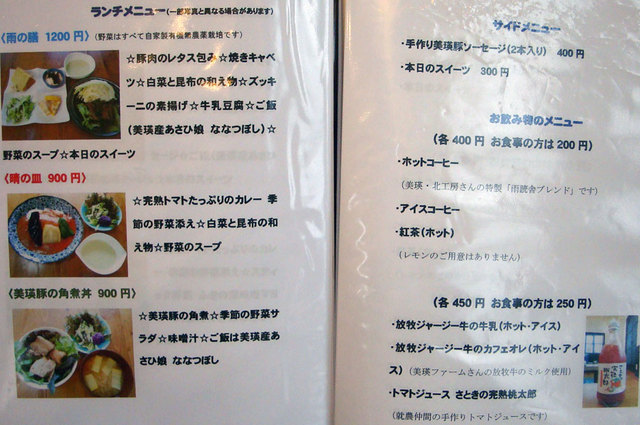 ランチメニュー(一部写真と異なる場合があります)
〈雨の膳 1200円〉(野菜はすべて自家製有機無農薬栽培です)
☆豚肉のレタス包み☆焼きキャベ
ツ☆白菜と昆布の和え物☆ズッキ
ーニの素揚げ☆牛乳豆腐☆ご飯
(美瑛産あさひ娘 ななつぼし)☆
野菜のスープ☆本日のスイーツ
〈晴の皿 900円〉
☆完熟トマトたっぷりのカレー 季
節の野菜添え☆白菜と昆布の和
え物☆野菜のスープ
〈美瑛豚の角煮丼 900円〉
☆美瑛豚の角煮☆季節の野菜サ
ラダ☆味噌汁☆ご飯は美瑛産あ
さひ娘 ななつぼし
サイドメニュー
・手作り美瑛豚ソーセージ(2本入り) 400円
・本日のスイーツ 300円
お飲み物のメニュー
(各400円 お食事の方は200円)
・ホットコーヒー
(美瑛・北工房さんの特製「雨読舎ブレンド」です)
・アイスコーヒー
・紅茶(ホット)
(レモンのご用意はありません)
(各450円 お食事の方は250円)
・放牧ジャージー牛の牛乳(ホット・アイス)
・放牧ジャージー牛のカフェオレ(ホット・アイ
ス)(美瑛ファームさんの放牧牛のミルク使用)
・トマトジュース さときの完熟桃太郎
(就農仲間の手作りトマトジュースです)